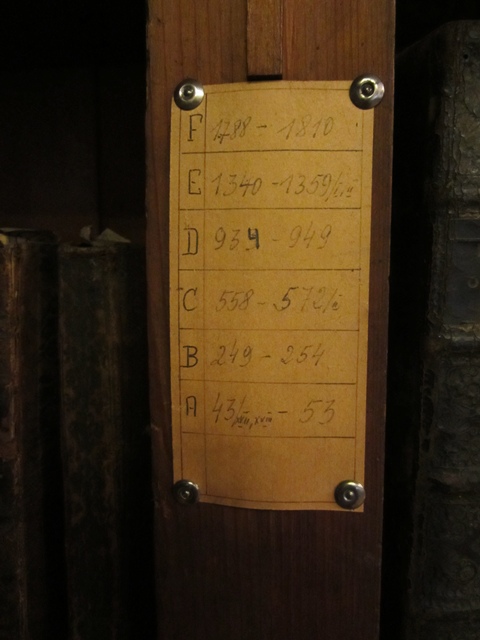 F 1788 - 1810
E 1340 - 1359/
D 934 - 949
C 558 - 572/
B 249 - 254
A 43/ - 53